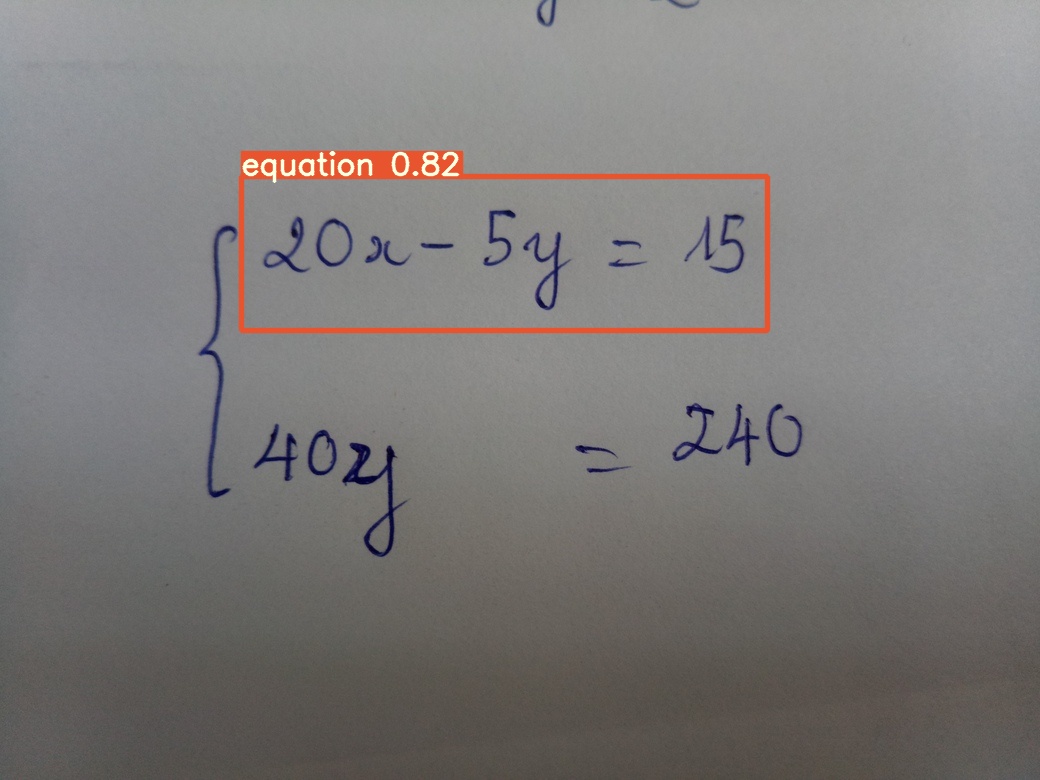 equation 0.82
20x - 5y = 15
= 240